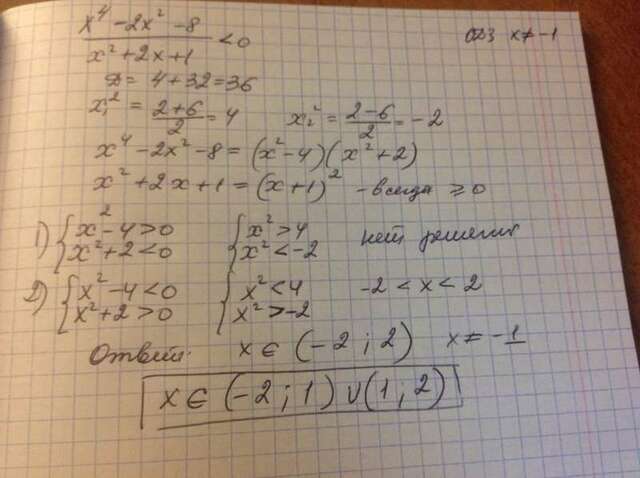 x⁴ - 2x² - 8 / x² + 2x + 1 < 0 ОДЗ x ≠ -1
D = 4 + 32 = 36
x₁² = (2+6)/2 = 4 x₂² = (2-6)/2 = -2
x⁴ - 2x² - 8 = (x² - 4)(x² + 2)
x² + 2x + 1 = (x + 1)² - всегда ≥ 0
1) { x² - 4 > 0 { x² > 4 нет решения
x² + 2 < 0 x² < -2
2) { x² - 4 < 0 { x² < 4 -2 < x < 2
x² + 2 > 0 x² > -2
Ответ: x ∈ (-2 ; 2) x ≠ -1
x ∈ (-2 ; 1) ∪ (1 ; 2)